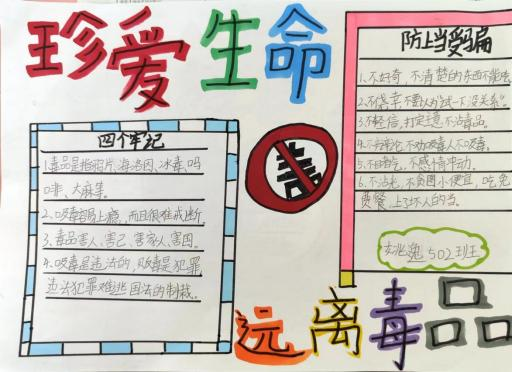 珍爱生命
四个牢记
1.毒品是指鸦片、海洛因、冰毒、吗
啡、大麻等。
2、吸毒容易上瘾,而且很难戒断
3、毒品害人、害己、害家人、害国。
4、吸毒是违法的,贩毒是犯罪
违法犯罪难逃国法的制裁。
毒
防上当受骗
1.不好奇,不清楚的东西不能
2.不侥幸,不要以为"试一下没关系"。
3.不轻信,打定主意不沾毒品。
不吸毒。
不感情冲动。
6.不沾光,不贪图小便宜,吃免
费餐,上了坏人的当。
姚魂 502班
远离毒品